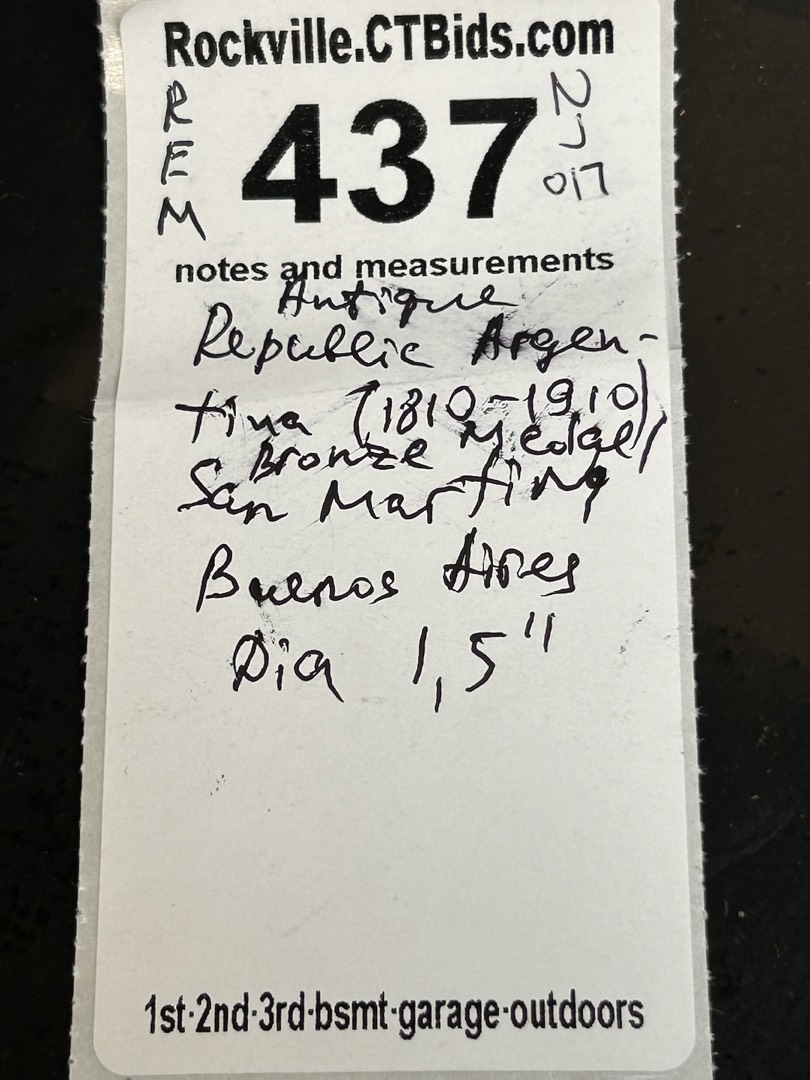 Rockville.CTBids.com
REM
437
notes and measurements
Antique
Republic Argen-
tina (1810-1910)
Bronze Medal,
San Martin,
Buenos Aires
Dia 1,5"
1st·2nd·3rd·bsmt·garage·outdoors